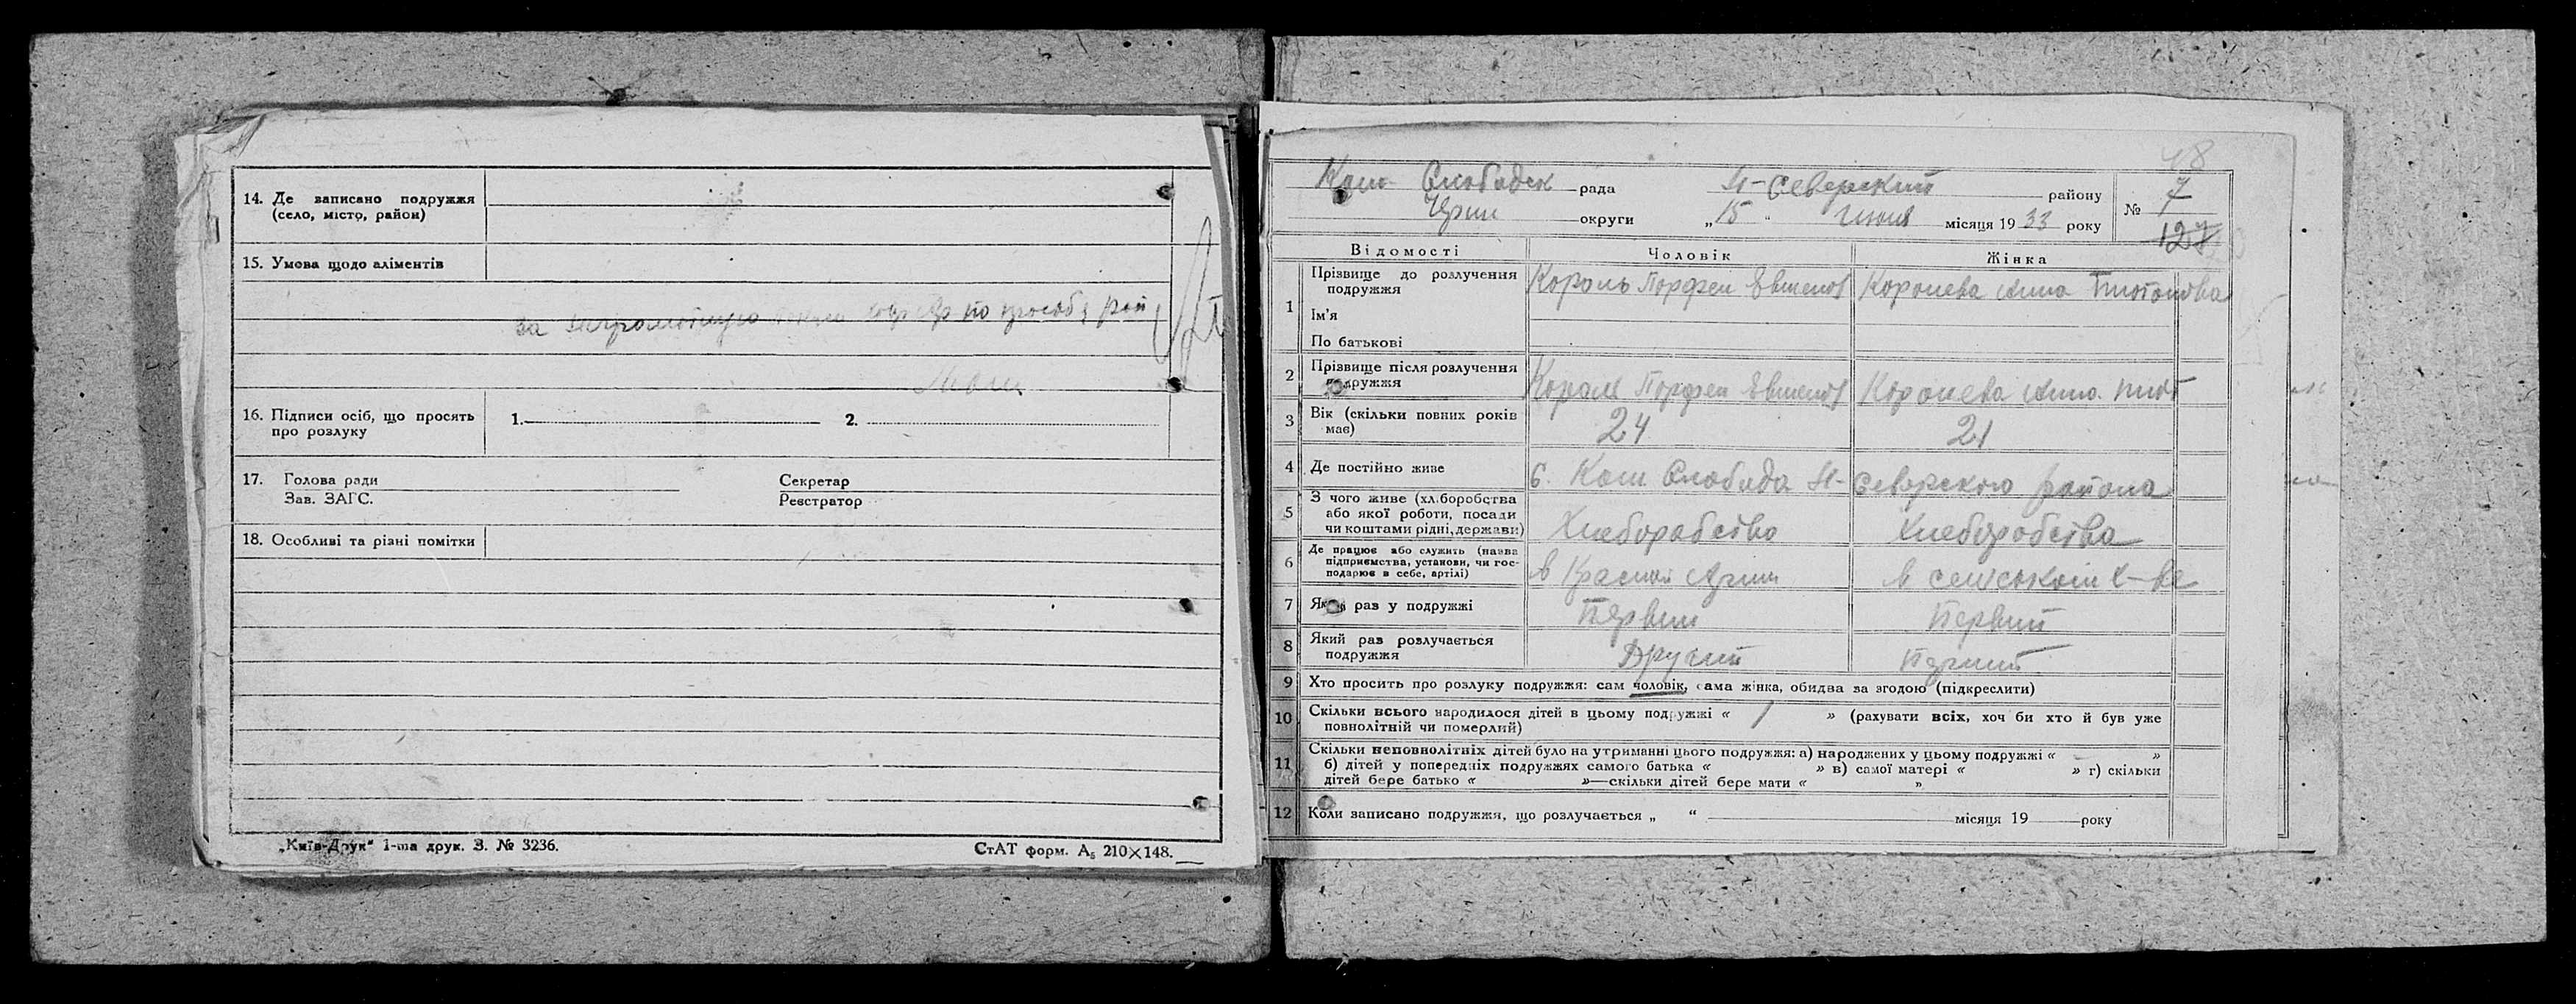 14. Де записано подружжя
(село, місто, район)
15. Умова щодо аліментів
за неграмотную по просьбе
16. Підписи осіб, що просять
про розлуку
1. 2.
17. Голова ради Секретар
Зав. ЗАГС. Реєстратор
18. Особливі та різні помітки
„Київ-Друк" 1-ша друк. З. № 3236. СтАТ форм. А5 210×148.
48
Слободск рада Н-Северский району № 7
Черн округи „15 " Июня місяця 19 33 року 127
Відомості Чоловік Жінка
1 Прізвище до розлучення подружжя Король Парфен Королева Анна
Ім'я
По батькові
2 Прізвище після розлучення подружжя Король Парфен Королева Анна
3 Вік (скільки повних років має) 24 21
4 Де постійно живе с. Слобода Н-Северского района
5 З чого живе (хліборобства або якої роботи, посади чи коштами рідні, держави) Хлеборобство Хлеборобства
6 Де працює або служить (назва підприємства, установи, чи господарює в себе, артілі) в Красной Армии в сельском х-ве
7 Який раз у подружжі Первий Первий
8 Який раз розлучається подружжя Другий
9 Хто просить про розлуку подружжя: сам чоловік, сама жінка, обидва за згодою (підкреслити)
10 Скільки всього народилося дітей в цьому подружжі « / » (рахувати всіх, хоч би хто й був уже
повнолітній чи померлий)
11 Скільки неповнолітніх дітей було на утриманні цього подружжя: а) народжених у цьому подружжі « — »
б) дітей у попередніх подружжях самого батька « » в) самої матері « » г) скільки
дітей бере батько « »—скільки дітей бере мати « »
12 Коли записано подружжя, що розлучається „ " місяця 19 року